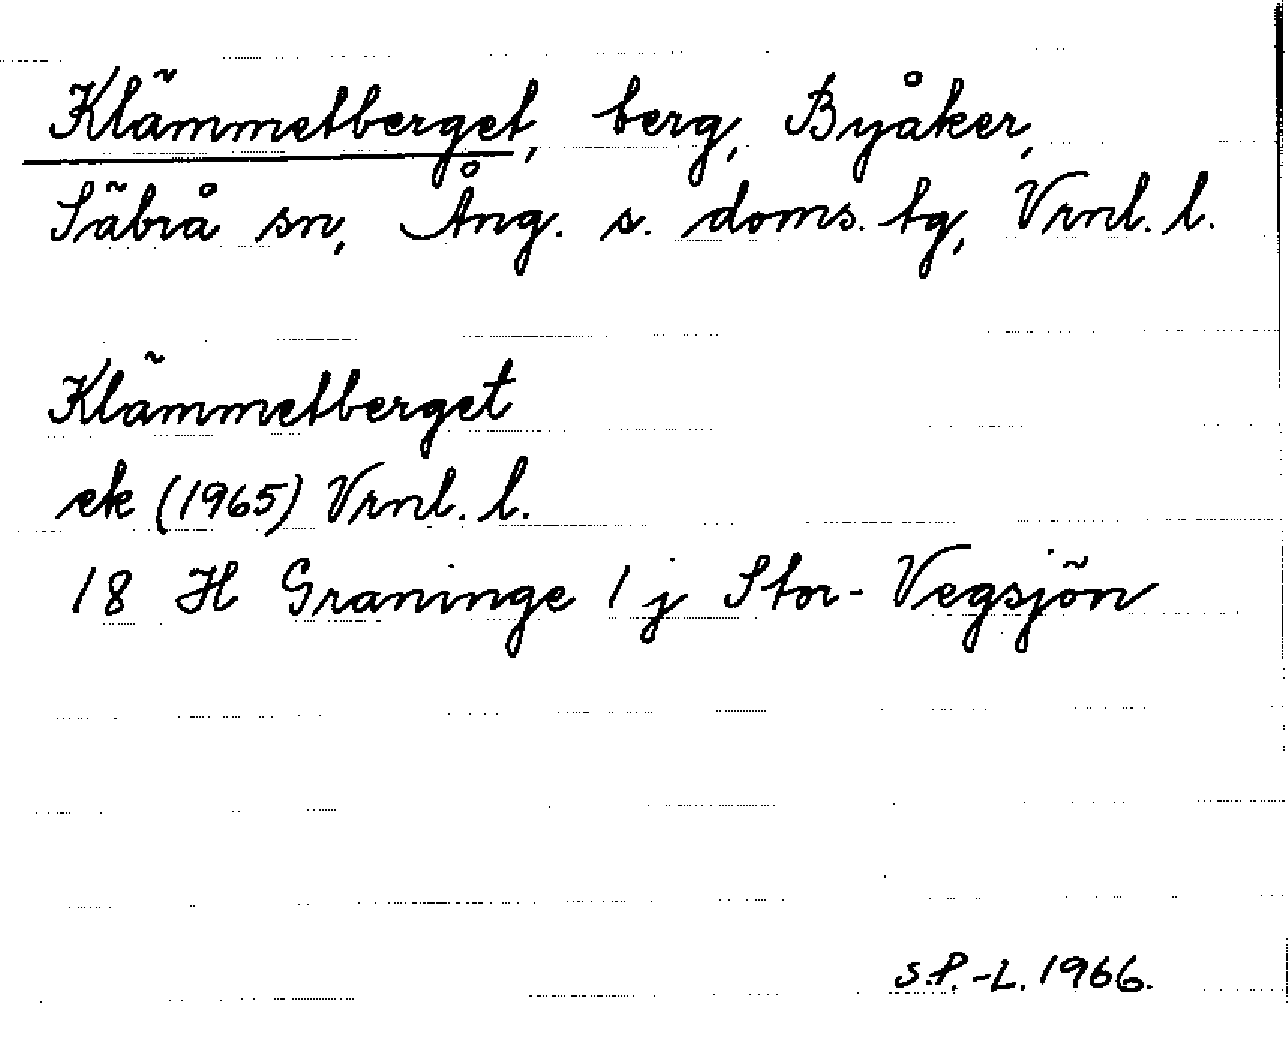 Klämmetberget, berg, Byåker,
Säbrå sn, Ång. s. doms. tg, Vrnl. l.
Klämmetberget
ek (1965) Vrnl. l.
18 H Graninge 1 j Stor-Vegsjön
S.P.-L. 1966.